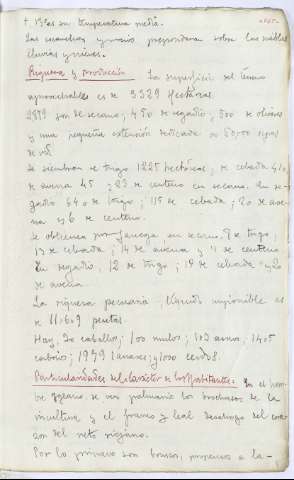 + 13º es su temperatura media.
Las escarchas y rocío preponderan sobre las nieblas
lluvias y nieves.
Riqueza y producción La superficie del término
aprovechable es de 3329 Hectáreas.
2879 son de secano; 450 de regadío; 500 de olivares
y una pequeña extensión dedicada a 80,000 cepas
de vid.
Se siembran de trigo 1225 hectáreas; de cebada 410
de avena 45; 23 de centeno en secano. En re-
gadío 640 de trigo; 115 de cebada; 20 de ave-
na y 6 de centeno.
Se obtienen por fanega en secano 8 de trigo,
13 de cebada; 14 de avena y 4 de centeno
En regadío, 12 de trigo; 19 de cebada y 20
de avena.
La riqueza pecuaria, líquido imponible es
de 11,609 pesetas.
Hay, 20 caballos; 100 mulos; 103 asnos; 1405
cabrío; 1979 lanares; y 1000 cerdos.
Particularidades del carácter de los habitantes: En el hom-
bre se ven palmario los brochazos de la
incultura y el franco y leal desahogo del cora-
zón del neto riojano.
Por lo primero son broncos, propensos a la-